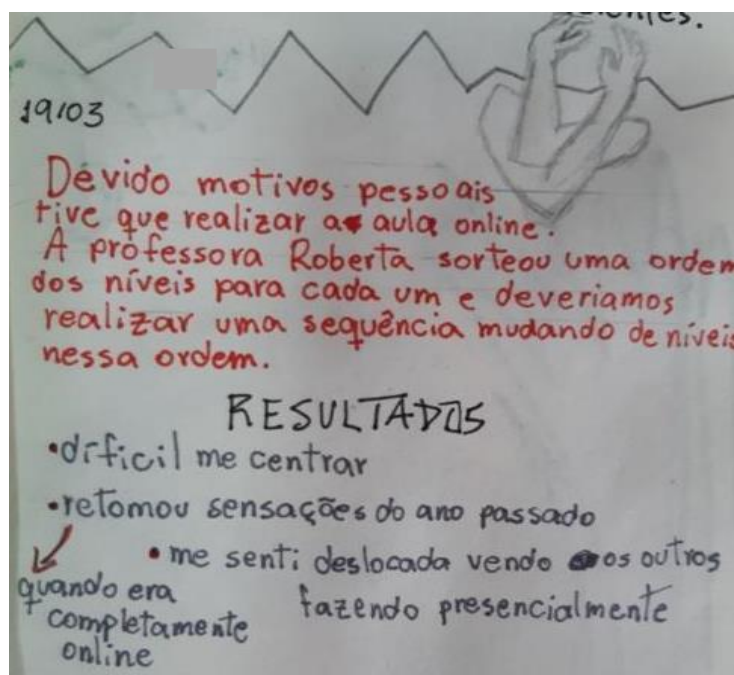 19/03
Devido motivos pessoais
tive que realizar a aula online.
A professora Roberta sorteou uma ordem
dos níveis para cada um e deveriamos
realizar uma sequência mudando de níveis
nessa ordem.
RESULTADOS
•dificil me centrar
•retomou sensações do ano passado
•me senti deslocada vendo os outros
fazendo presencialmente
quando era
completamente
online